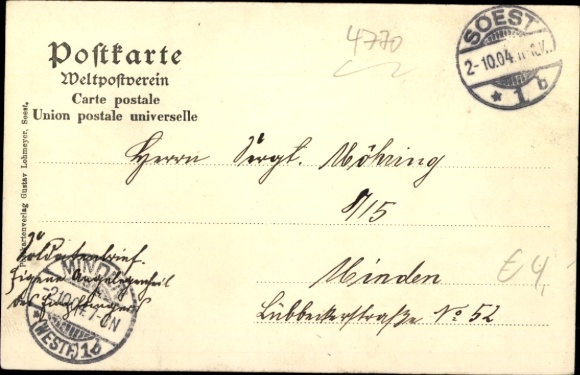 4770
SOEST
2-10.04.11-12V.
* 1 b
Postkarte
Weltpostverein
Carte postale
Union postale universelle
Postkartenverlag Gustav Lohmeyer, Soest.
Herrn Sergt. Möhring
8/15
Minden
Lübbeckerstraße No 52
€ 4,
Soldatenbrief.
Eigene Angelegenheit
des Empfängers
MINDEN
-2.10.04. 7-8N
(WESTF) 1b